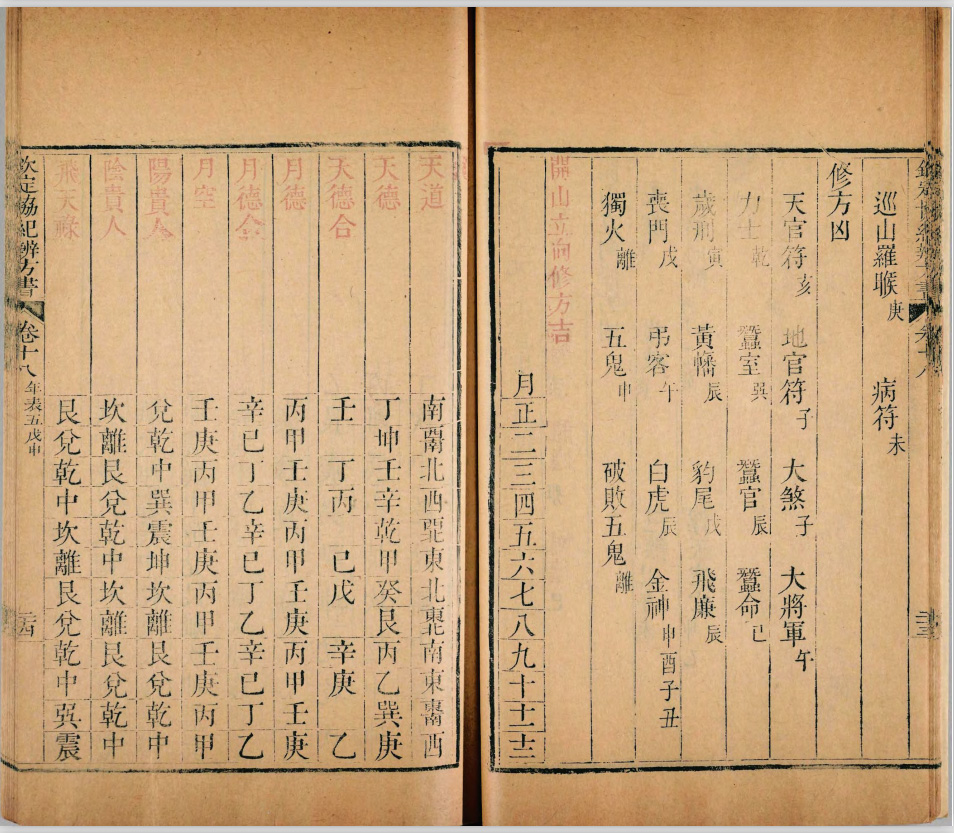 欽定協紀辨方書 卷十八
巡山羅睺庚 病符未
修方凶
天官符亥 地官符子 大煞子 大將軍午
力士乾 蠶室巽 蠶官辰 蠶命巳
歲刑寅 黃幡辰 豹尾戌 飛廉辰
喪門戌 弔客午 白虎辰 金神申酉子丑
獨火離 五鬼申 破敗五鬼離
開山立向修方吉
月正二三四五六七八九十十一十二
天道 南西南北西西北東北東北南東東南西
天德 丁坤壬辛乾甲癸艮丙乙巽庚
天德合 壬 丁丙 己戊 辛庚 乙
月德 丙甲壬庚丙甲壬庚丙甲壬庚
月德合 辛己丁乙辛己丁乙辛己丁乙
月空 壬庚丙甲壬庚丙甲壬庚丙甲
陽貴人 兌乾中巽震坤坎離艮兌乾中
陰貴人 坎離艮兌乾中坎離艮兌乾中
飛天祿 艮兌乾中坎離艮兌乾中巽震
欽定協紀辨方書 卷十八 年表五戊申